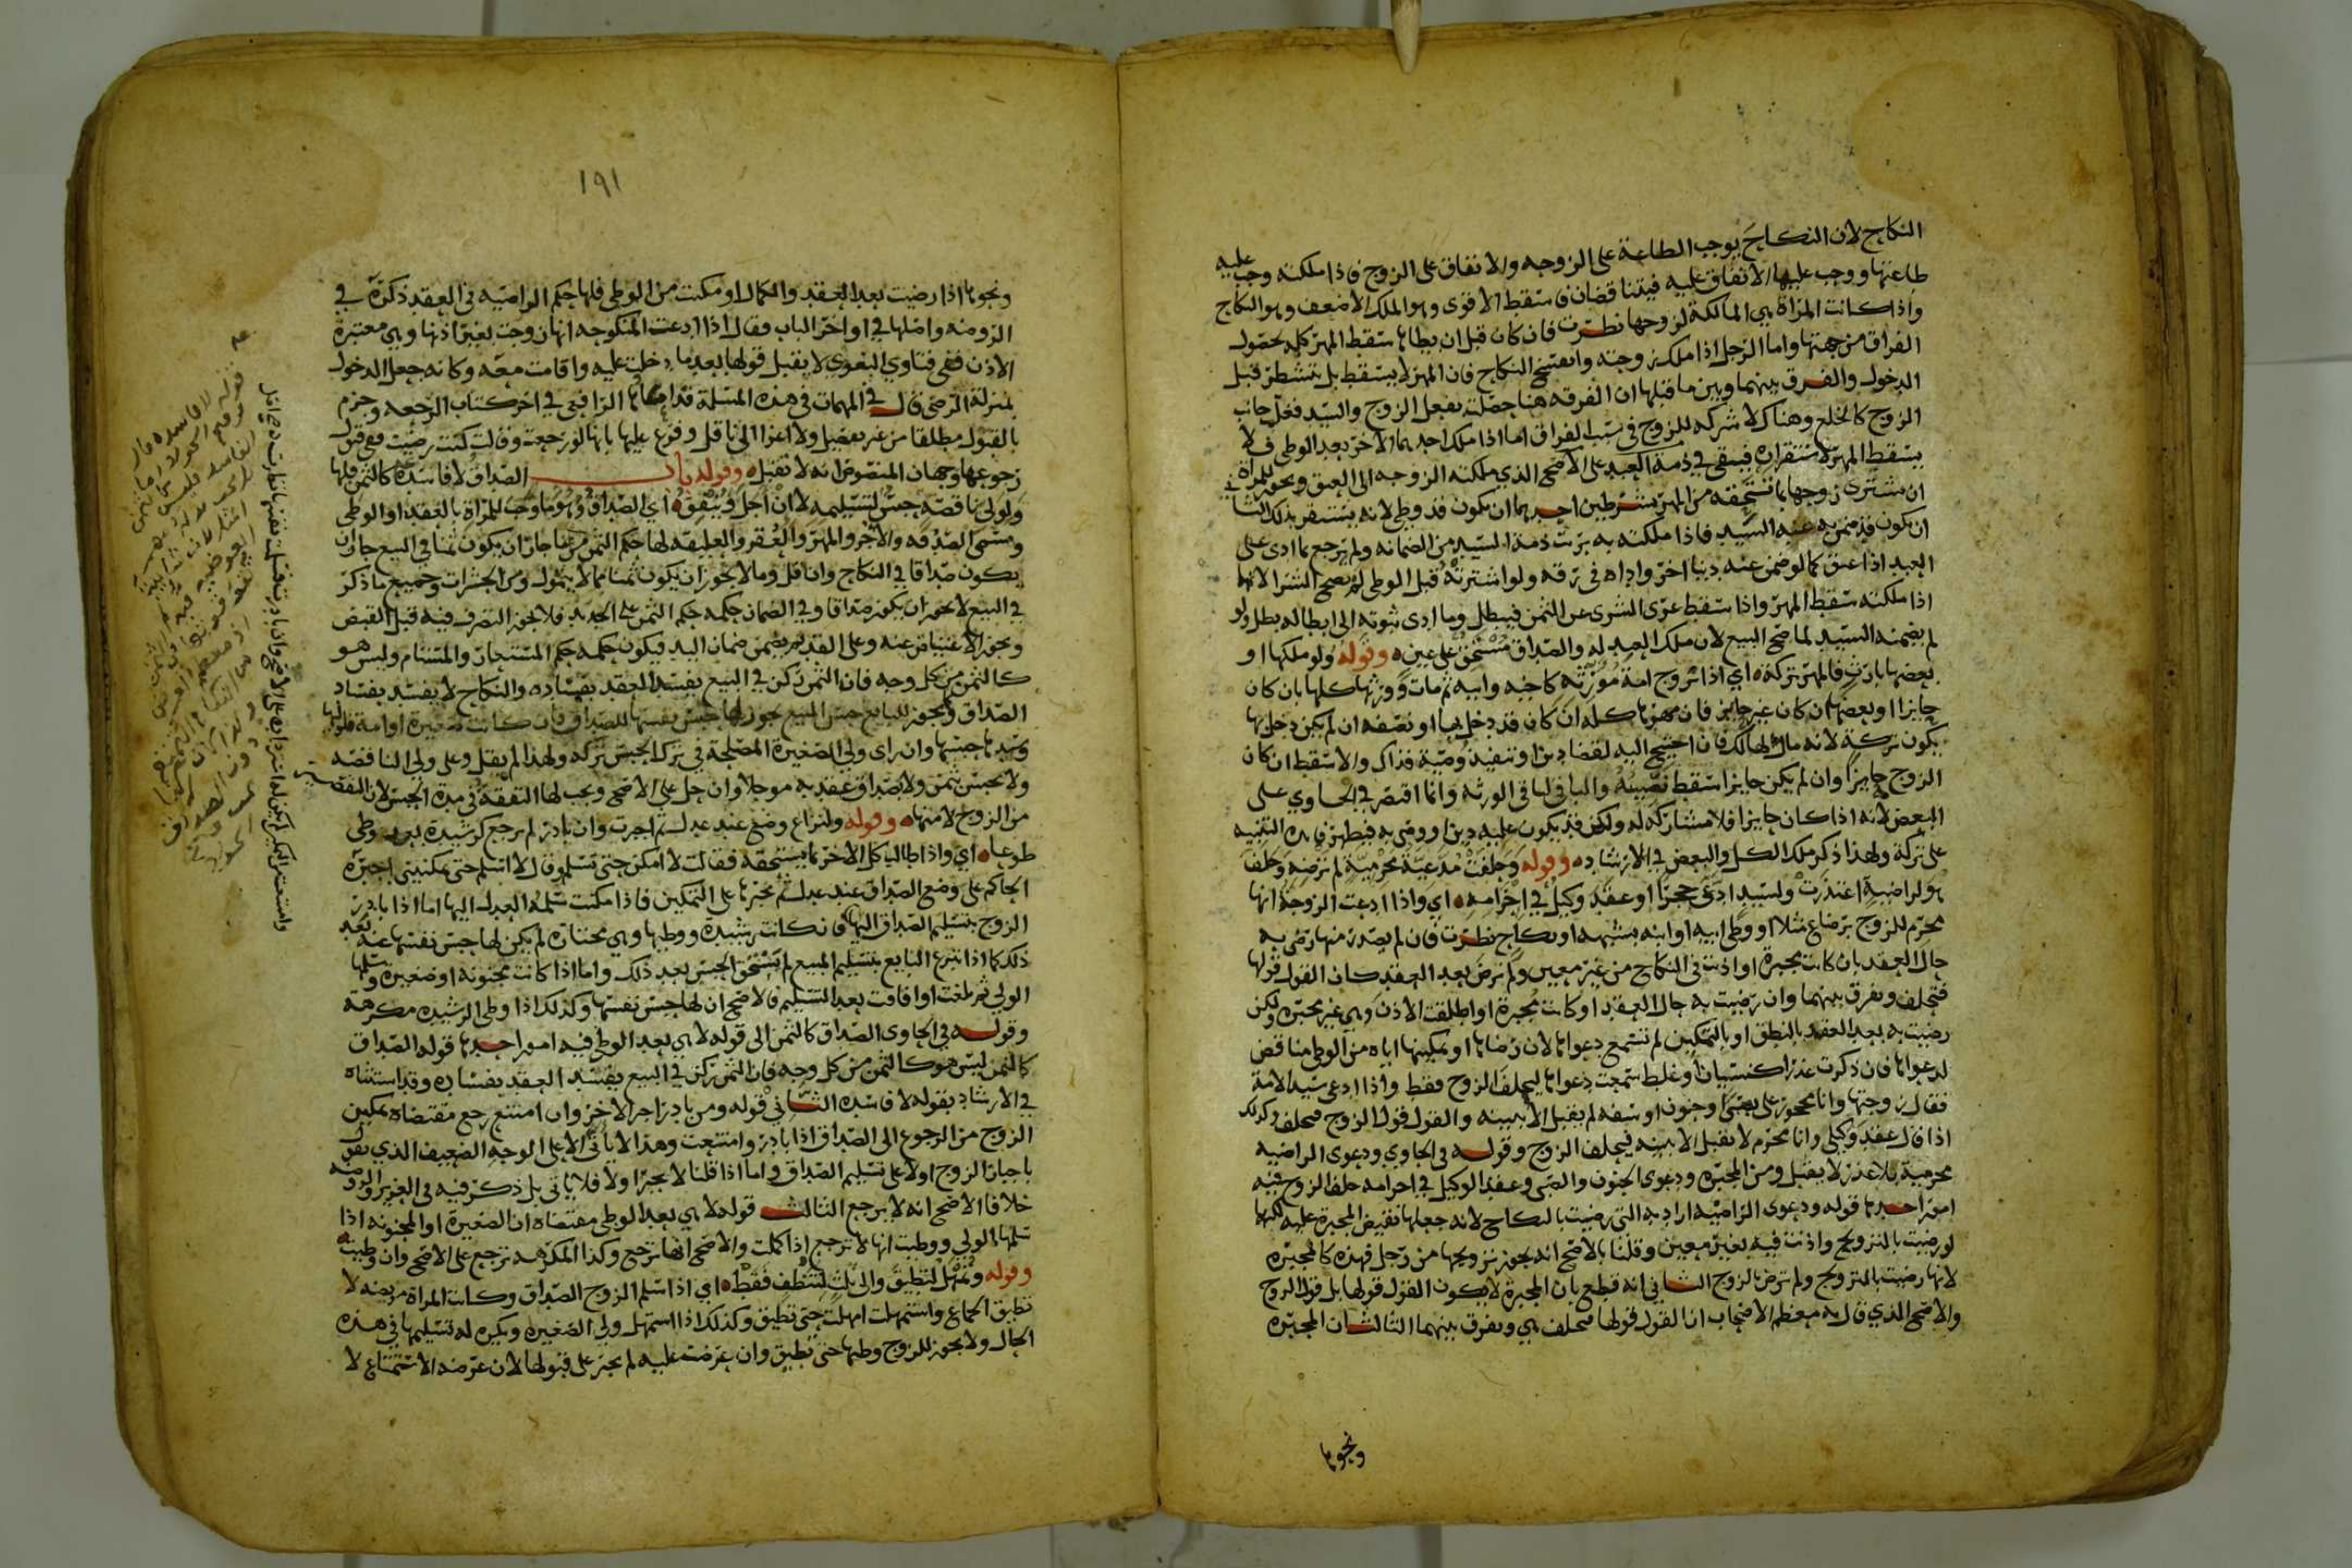 النكاح لان النكاح يوجب الطاعة على الزوجه والانفاق على الزوج فاذا ملكته وجب عليه
طاعتها ووجب عليها الانفاق عليه فيتناقضان فاسقط الاقوى وهو الملك الاضعف وهو النكاح
واذا كانت المرأة هي المالكة لزوجها نظرت فان كان قبل ان يطاها سقط المهر كله لحصول
الفراق من جهتها واما الرجل اذا ملك زوجته وانفسخ النكاح فان المهر لا يسقط بل يتشطر قبل
الدخول والفرق بينهما وبين ما قبلها ان الفرقه هنا حصلت بفعل الزوج والسيد فغلب جانب
الزوج كالخلع وهناك لا شركه للزوج في سبب الفراق اما اذا ملك احدهما الاخر بعد الوطى فلا
يسقط المهر لاستقراره فيبقى في ذمة العبد على الاصح الذي ملكته الزوجه الى العتق ويجوز للمرأة
ان تشتري زوجها بما تستحقه من المهر بشرطين احدهما ان يكون قد وطي لانه يستقر بذلك الثاني
ان يكون قد ضمن به عنه السيد فاذا ملكته به برئت ذمة السيد من الضمانه ولم يرجع بما ادى على
العبد اذا عتق كما لو ضمن عنه دينا اخر واداه في رقه ولو اشترته قبل الوطى لم يصح الشرا لانها
اذا ملكته سقط المهر واذا سقط عرى الشرى عن الثمن فيبطل وما ادى ثبوته الى ابطاله بطل ولو
لم يضمنه السيد لما صح البيع لان ملك العبد له والصداق مستحق على عين وقوله ولو ملكها او
بعضها بارث فالمهر تركة اي اذا تزوج امة مورثه كاخيه وابيه ثم مات وورثها كلها بان كان
حايزا او بعضها بان كان غير حايز فان مهرها كله ان كان قد دخل بها او نصفه ان لم يكن دخل بها
يكون تركة لانه مال لهالك فان احتيج اليه لقضا دين او تنفيذ وصية فذاك والا سقط ان كان
الزوج حايزا وان لم يكن حايزا سقط نصيبه والباقي لباقي الورثه وانما اقتصر في الحاوي على
البعض لانه اذا كان حايزا فلا مشارك له ولكن قد يكون عليه دين او وصى به فيظهر فايدة التنبيه
على تركة ولهذا ذكر ملك الكل والبعض في الارشاد وقوله وحلفت مدعية محرمية لم ترضه وحلف
هو لراضية اعتذرت ولسيد ادعى حجرا او عقد وكيل في احرامه اي واذا ادعت الزوجة انها
محرم للزوج برضاع مثلا او وطى ابيه او ابنه بشبهه او نكاح نظرت فان لم يصدر منها رضى به
حال العقد بان كانت مجبرة او اذنت في النكاح من غير معين ولم ترض بعد العقد كان القول قولها
فتحلف ويفرق بينهما وان رضيت به حال العقد او كانت مجبرة او اطلقت الاذن وهي غير مجبره ولكن
رضيت به بعد العقد بالنطق او بالتمكين لم تسمع دعواها لان رضاها او تمكينها اياه من الوطى مناقض
لدعواها فان ذكرت عذرا كنسيان او غلط سمعت دعواها ليحلف الزوج فقط واذا ادعى سيد الامة
فقال زوجتها وانا محجور علي بصبى او جنون او سفه لم يقبل الا ببينه والقول قول الزوج فيحلف وكذلك
اذا قال عقد وكيلي وانا محرم لا يقبل الا ببينه فيحلف الزوج وقوله في الحاوي ودعوى الراضيه
محرمية بلا عذر لا يقبل ومن المجبره ودعوى الجنون والصبى وعقد الوكيل في احرامه حلف الزوج فيه
امور احدها قوله ودعوى الراضيه اراد به التي رضيت بالنكاح لانه جعلها نقيض المجبرة عليه لكنها
لو رضيت بالتزويج واذنت فيه بغير معين وقلنا بالاصح انه يجوز تزويجها من رجل فهذه كالمجبره
لانها رضيت بالتزويج ولم ترض بالزوج الثاني انه قطع بان المجبرة لا يكون القول قولها بل قول الزوج
والاصح الذي قال به معظم الاصحاب ان القول قولها فتحلف هي ويفرق بينهما الثالث ان المجبره
ونحوها
١٩١
ونحوها اذا رضيت بعد العقد والكمال او مكنت من الوطى فلها حكم الراضيه في العقد ذكره في
الروضه واصلها في اواخر الباب فقال اذا ادعت المنكوحه انها زوجت بغير اذنها وهي معتبرة
الاذن ففي فتاوي البغوي لا يقبل قولها بعد ما دخلت عليه واقامت معه وكانه جعل الدخول
بمنزلة الرضى قال في المهمات في هذه المسلة قد ذكرها الرافعي في اخر كتاب الرجعه وجزم
بالقبول مطلقا من غير تفصيل ولا اعزا الى ناقل وفرع عليها بانها لو رجعت وقالت كنت رضيت ففي قبول
رجوعها وجهان المنصوص انه لا تقبل وقوله باب الصداق لا فاسده كالثمن فلها
ولولي ناقصة حبس لتسليمه لا ان اجل وينفق اي الصداق وهو ما وجب للمرأة بالعقد او الوطى
ويسمى الصدقه والاجر والمهر والعقر والعليقه لها حكم الثمن فما جاز ان يكون ثمنا في البيع جاز ان
يكون صداقا في النكاح وان قل وما لا يجوز ان يكون ثمنا مما لا يتمول ومن الحشرات وجميع ما ذكر
في البيع لا يجوز ان يكون صداقا وفي الضمان حكمه حكم الثمن على الجديد فلا يجوز التصرف فيه قبل القبض
ويجوز الاعتياض عنه وعلى القديم يضمن ضمان اليد فيكون حكمه حكم المستعار والمستام وليس هو
كالثمن من كل وجه فان الثمن ركن في البيع يفسد العقد بفساده والنكاح لا يفسد بفساد
الصداق وكما يجوز للبايع حبس المبيع يجوز لها حبس نفسها للصداق فان كانت صغيرة او امة فلوليها
وسيدها حبسها وان راى ولي الصغيرة المصلحة في ترك الحبس تركه ولهذا لم يقل وعلى ولي الناقصه
ولا تحبس بثمن ولا بصداق عقد به موجلا وان حل على الاصح ويجب لها النفقة في مدة الحبس لان التقصير
من الزوج لا منها وقوله ولنزاع وضع عند عدل ثم اجبرت وان بادر لم يرجع كرشيدة بعد وطى
طوعا اي واذا طالب كل الاخر بما يستحقه فقالت لا امكن حتى تسلم وقال لا اسلم حتى تمكنيني اجبره
الحاكم على وضع الصداق عند عدل ثم يجبرها على التمكين فاذا مكنت سلمه العدل اليها اما اذا بادر
الزوج بتسليم الصداق اليها فان كانت رشيدة ووطيها وهي مختارة لم يكن لها حبس نفسها عنه بعد
ذلك كما اذا تبرع البايع بتسليم المبيع لم يستحق الحبس بعد ذلك واما اذا كانت مجنونة او صغيرة وسلمها
الولي ثم بلغت او افاقت بعد التسليم فالاصح ان لها حبس نفسها وكذلك اذا وطى الرشيده مكرهة
وقوله في الحاوى الصداق كالثمن الى قوله لا هي بعد الوطى فيه امور احدها قوله الصداق
كالثمن ليس هو كالثمن من كل وجه فان الثمن ركن في البيع يفسد العقد بفساده وقد استثناه
في الارشاد بقوله لا فاسده الثاني قوله ومن بادر اجبر الاخر وان امتنع رجع مقتضاه تمكين
الزوج من الرجوع الى الصداق اذا بادر وامتنعت وهذا لا ياتى الا على الوجه الضعيف الذي يقول
باجبار الزوج اولا على تسليم الصداق واما اذا قلنا لا يجبر اولا فلا ياتى بل ذكر فيه في العزيز والروضه
خلافا الاصح انه لا يرجع الثالث قوله لا هي بعد الوطى مقتضاه ان الصغيرة او المجنونه اذا
سلمها الولي ووطيت انها لا ترجع اذا كملت والاصح انها ترجع وكذا المكرهه ترجع على الاصح وان وطيت
وقوله وتمهل لتطيق والى ثلث لتنظف فقط اي اذا سلم الزوج الصداق وكانت المراة مريضه لا
تطيق الجماع واستمهلت امهلت حتى تطيق وكذلك اذا استمهل ولي الصغيره ويكره له تسليمها في هذه
الحال ولا يجوز للزوج وطيها حتى تطيق وان عرضت عليه لم يجبر على قبولها لان غرضه الاستمتاع لا